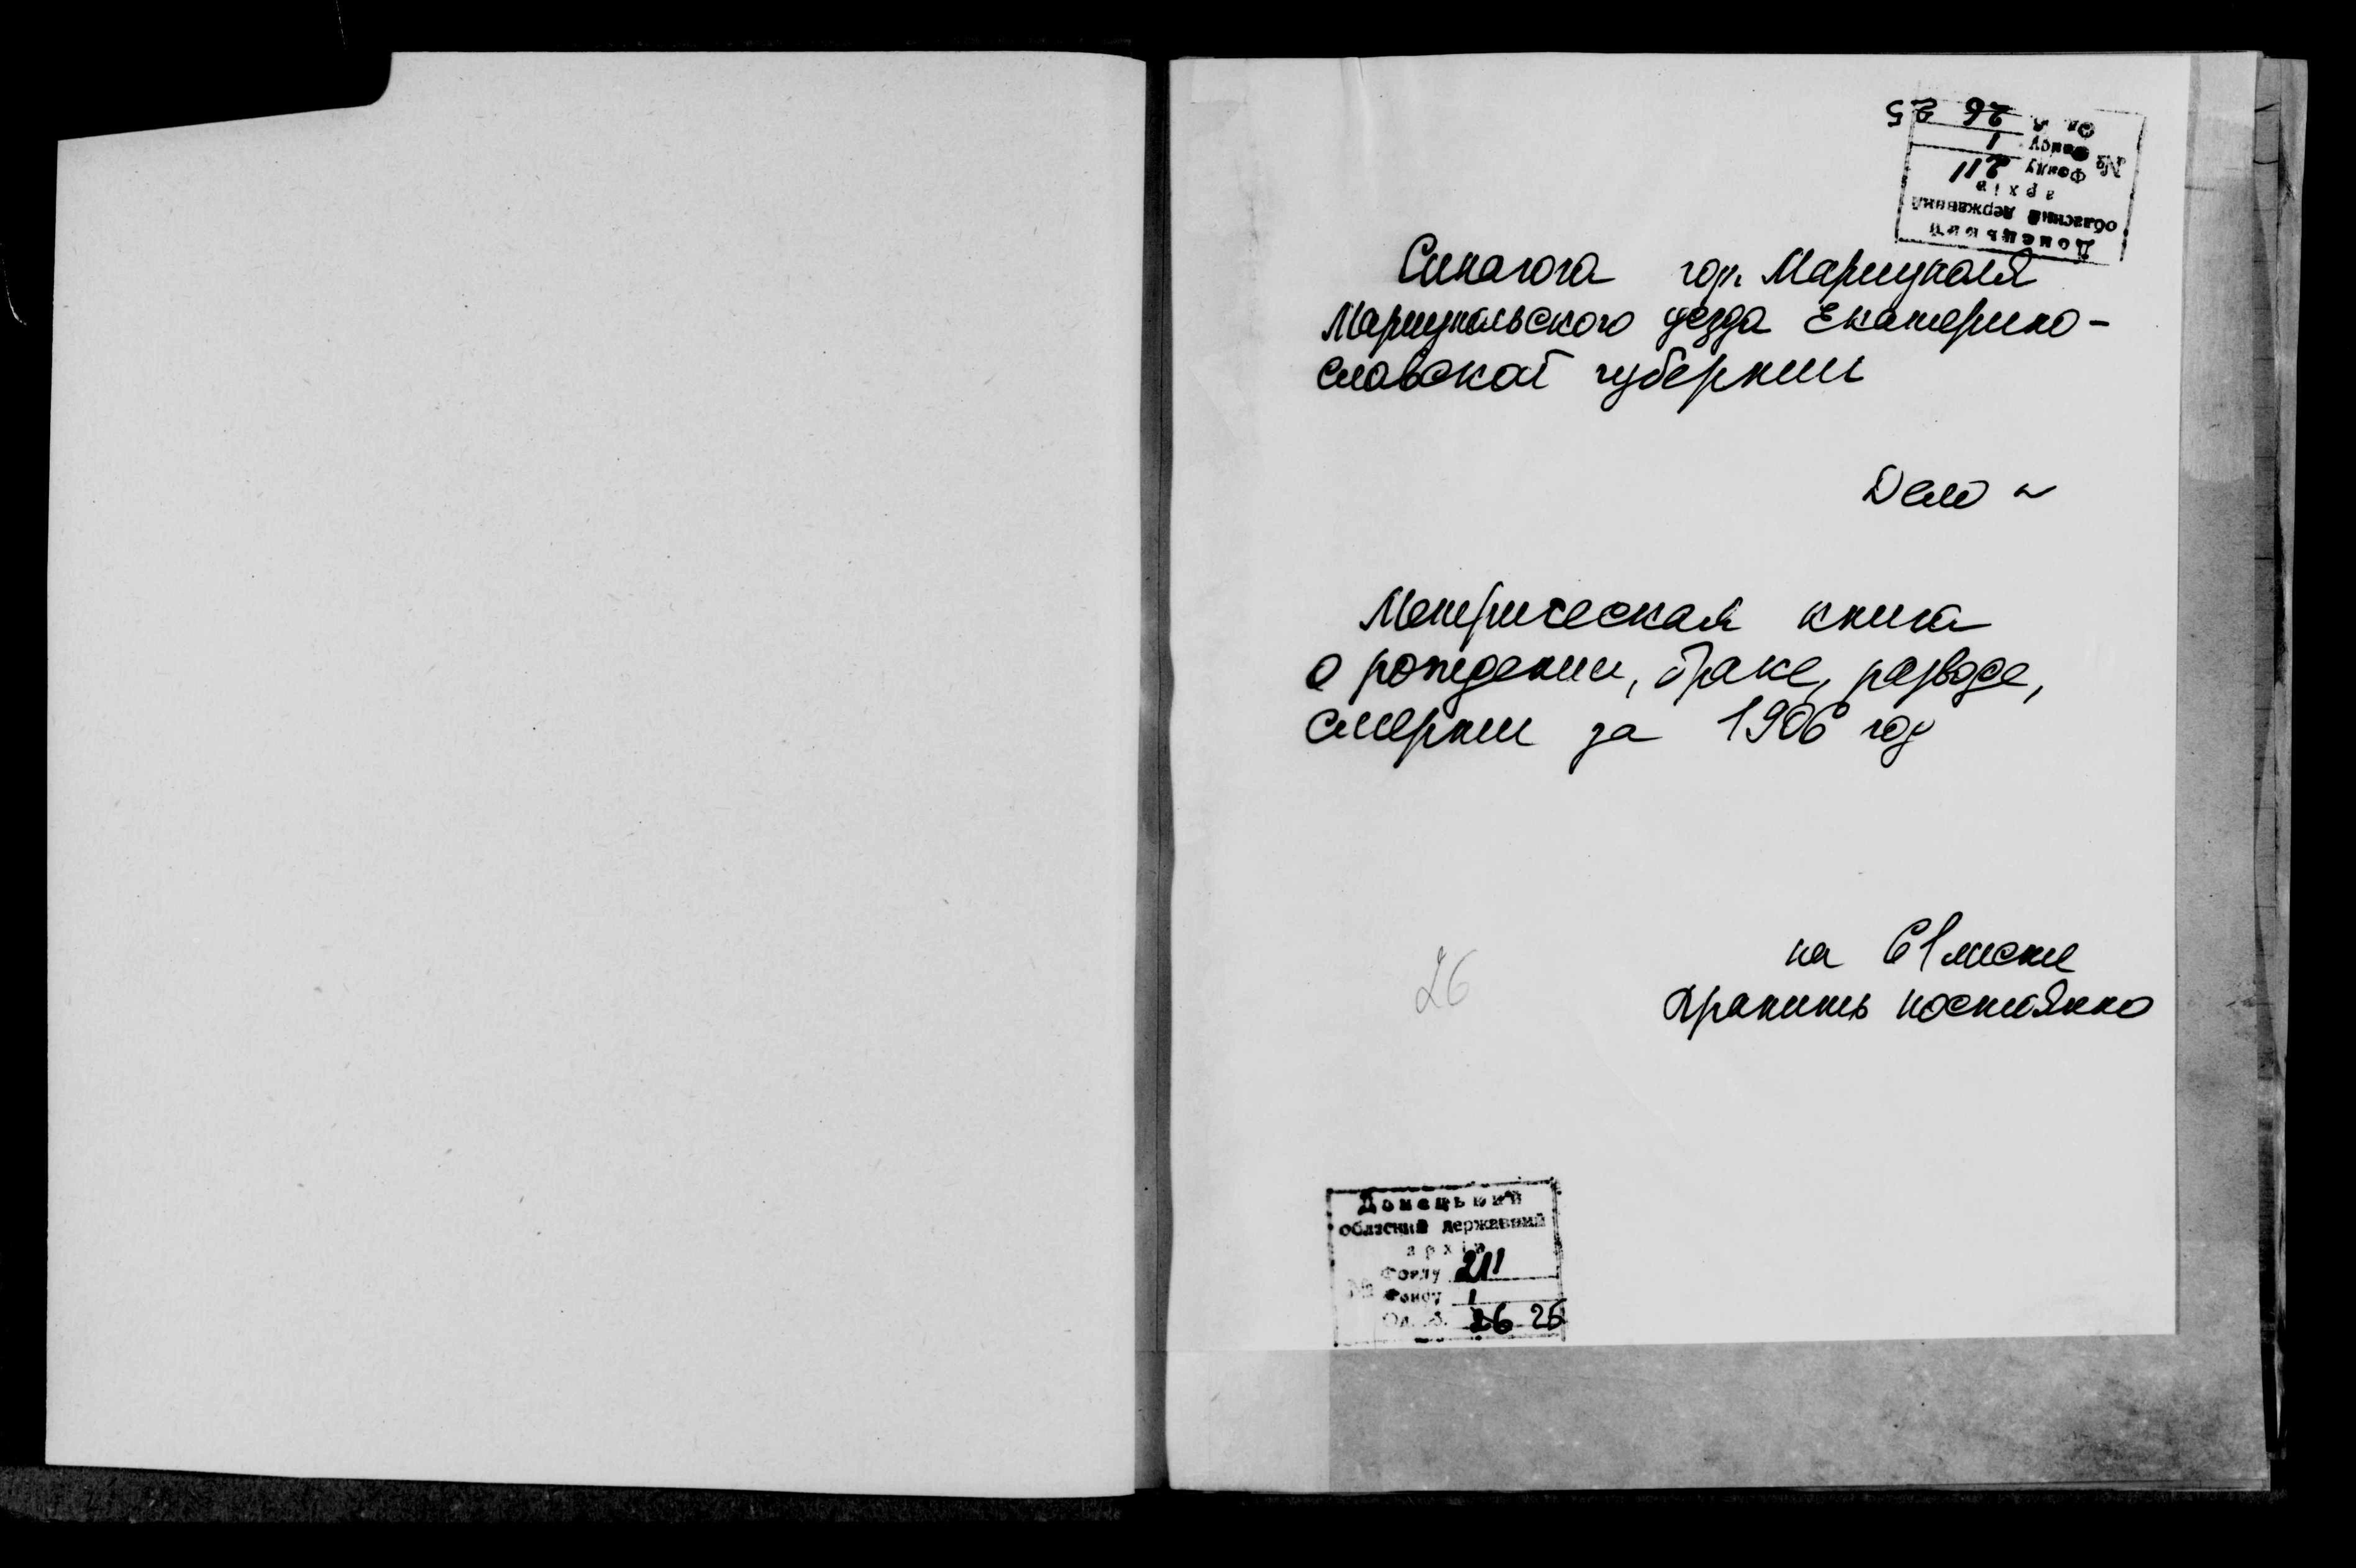 Донецький
обласний державний
архів
№ Фонду 211
Фонду 1
Од. зб. 26 25
Синагога гор. Мариуполя
Мариупольского уезда Екатерино-
славской губернии
Дело ~
Метрическая книга
о рождении, браке, разводе,
смерти за 1906 год
26
на 61 листе
Хранить постоянно
Донецький
обласний державний
архів
Фонду 211
№ Фонду 1
Од. зб. 26 25